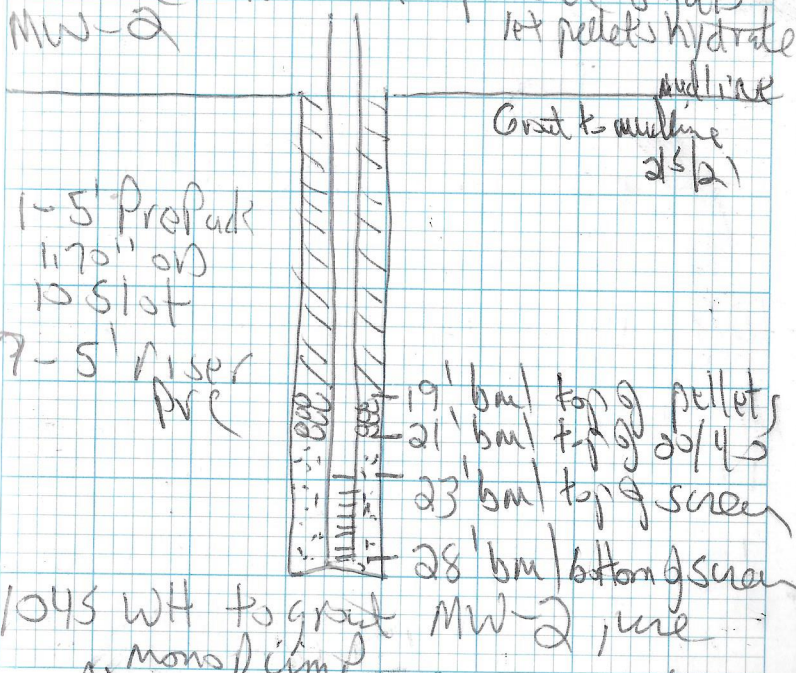 MW-2
let pellets hydrate
mudline
Grout to mudline
2/5/21
1-5' PrePack
1.70" OD
10 Slot
7-5' riser
PVC
19' bml top of pellets
21' bml top of 20/40
23' bml top of screen
28' bml bottom of screen
1045 WH to grout MW-2, use
mono pump